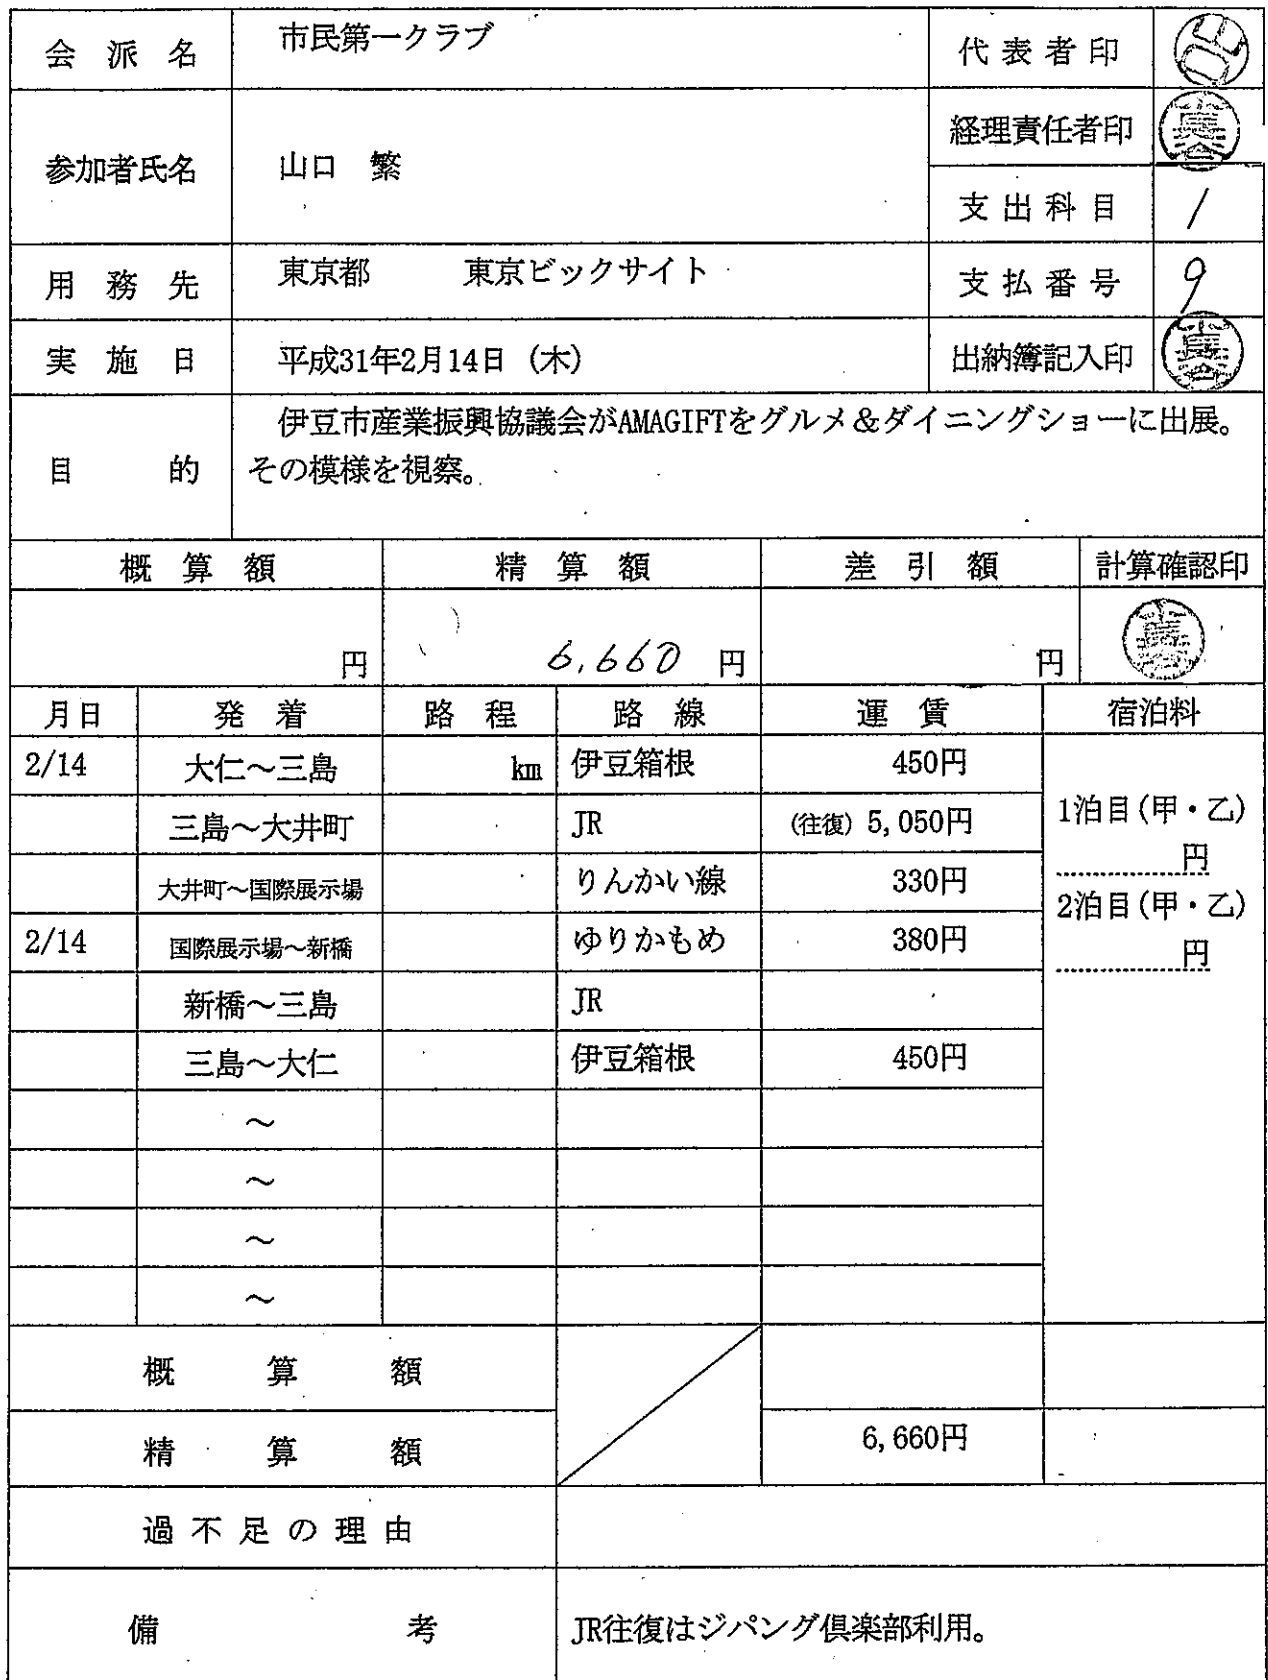 会派名 市民第一クラブ 代表者印
参加者氏名 山口 繁 経理責任者印
支出科目 1
用務先 東京都 東京ビックサイト 支払番号 9
実施日 平成31年2月14日 (木) 出納簿記入印
目的 伊豆市産業振興協議会がAMAGIFTをグルメ&ダイニングショーに出展。
その模様を視察。
概算額 精算額 差引額 計算確認印
円 6,660 円 円
月日 発着 路程 路線 運賃 宿泊料
2/14 大仁〜三島 km 伊豆箱根 450円
三島〜大井町 JR (往復) 5,050円 1泊目(甲・乙)
円
大井町〜国際展示場 りんかい線 330円
2泊目(甲・乙)
2/14 国際展示場〜新橋 ゆりかもめ 380円
円
新橋〜三島 JR
三島〜大仁 伊豆箱根 450円
〜
〜
〜
〜
概算額
精算額 6,660円
過不足の理由
備考 JR往復はジパング倶楽部利用。